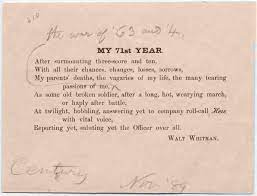 the war of '63 and '4.
MY 71st YEAR
After surmounting three-score and ten,
With all their chances, changes, losses, sorrows,
My parents' deaths, the vagaries of my life, the many tearing
passions of me,
As some old broken soldier, after a long, hot, wearying march,
or haply after battle,
At twilight, hobbling, answering yet to company roll-call Here
with vital voice,
Reporting yet, saluting yet the Officer over all.
WALT WHITMAN.
Century
Nov '89